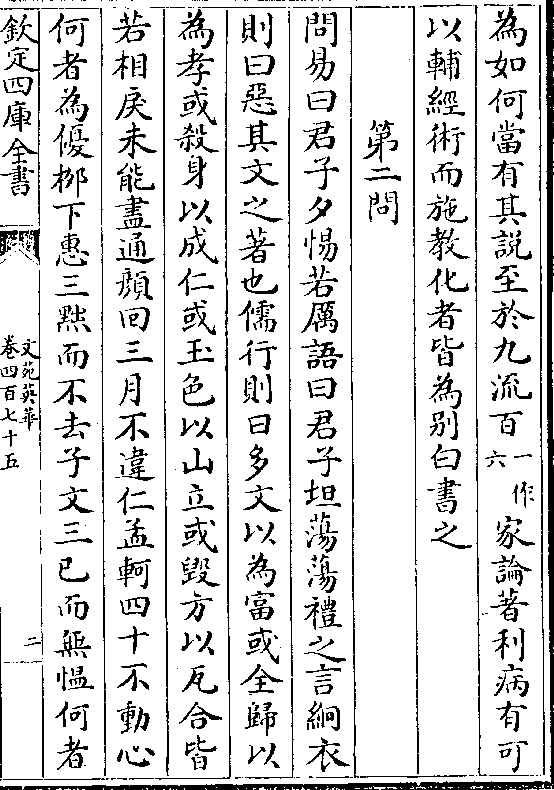 為如何當有其説至於九流百一作六家論著利病有可
以輔經術而施教化者皆為别白書之
第二問
問易曰君子夕惕若厲語曰君子坦蕩蕩禮之言絅衣
則曰惡其文之著也儒行則曰多文以為富或全歸以
為孝或殺身以成仁或玉色以山立或毀方以瓦合皆
若相戾未能盡通顔回三月不違仁孟軻四十不動心
何者為優栁下惠三黜而不去子文三已而無愠何者
欽定四庫全書
文苑英華
卷四百七十五
二